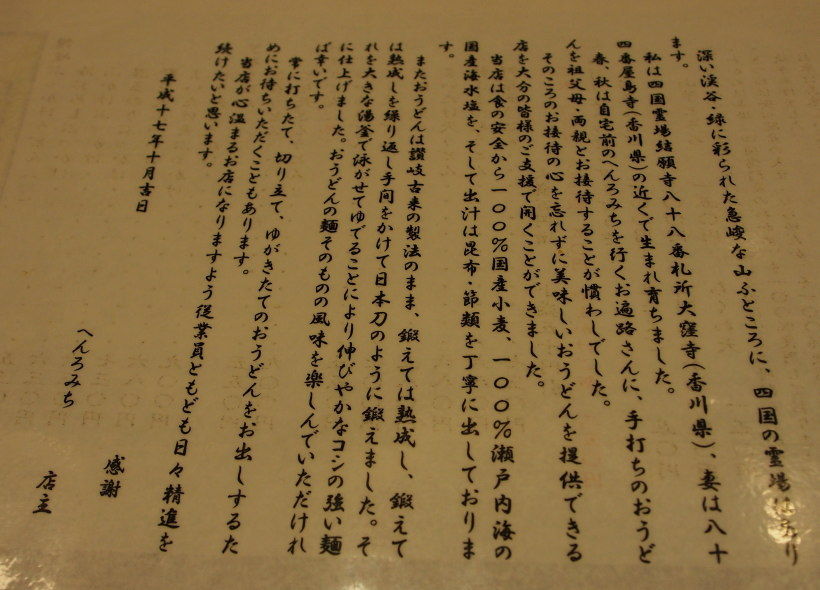 深い渓谷・緑に彩られた急峻な山ふところに、四国の霊場はあり
ます。
私は四国霊場結願寺八十八番札所大窪寺(香川県)、妻は八十
四番屋島寺(香川県)の近くで生まれ育ちました。
春、秋は自宅前のへんろみちを行くお遍路さんに、手打ちのおうど
んを祖父母・両親とお接待することが慣わしでした。
そのころのお接待の心を忘れずに美味しいおうどんを提供できる
店を大分の皆様のご支援で開くことができました。
当店は食の安全から一〇〇%国産小麦、一〇〇%瀬戸内海の
国産海水塩を、そして出汁は昆布・節類を丁寧に出しておりま
す。
またおうどんは讃岐古来の製法のまま、鍛えては熟成し、鍛えて
は熟成しを繰り返し手間をかけて日本刀のように鍛えました。そ
れを大きな湯釜で泳がせてゆでることにより伸びやかなコシの強い麺
に仕上げました。おうどんの麺そのものの風味を楽しんでいただけれ
ば幸いです。
常に打ちたて、切り立て、ゆがきたてのおうどんをお出しするた
めにお待ちいただくこともあります。
当店が心温まるお店になりますよう従業員ともども日々精進を
続けたいと思います。
平成十七年十月吉日
へんろみち
感謝
店主